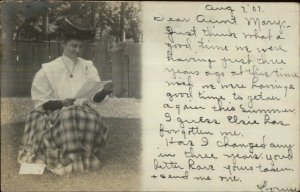 Aug 2 '07.
Dear Aunt Mary:-
Just think what a
good time we were
having just three
years ago at this time
now we were having a
good time to gether
again this Summer
I guess Elsie has
forgotten me.
Has I changed any
in three years you
better have yours taken
& send me one.